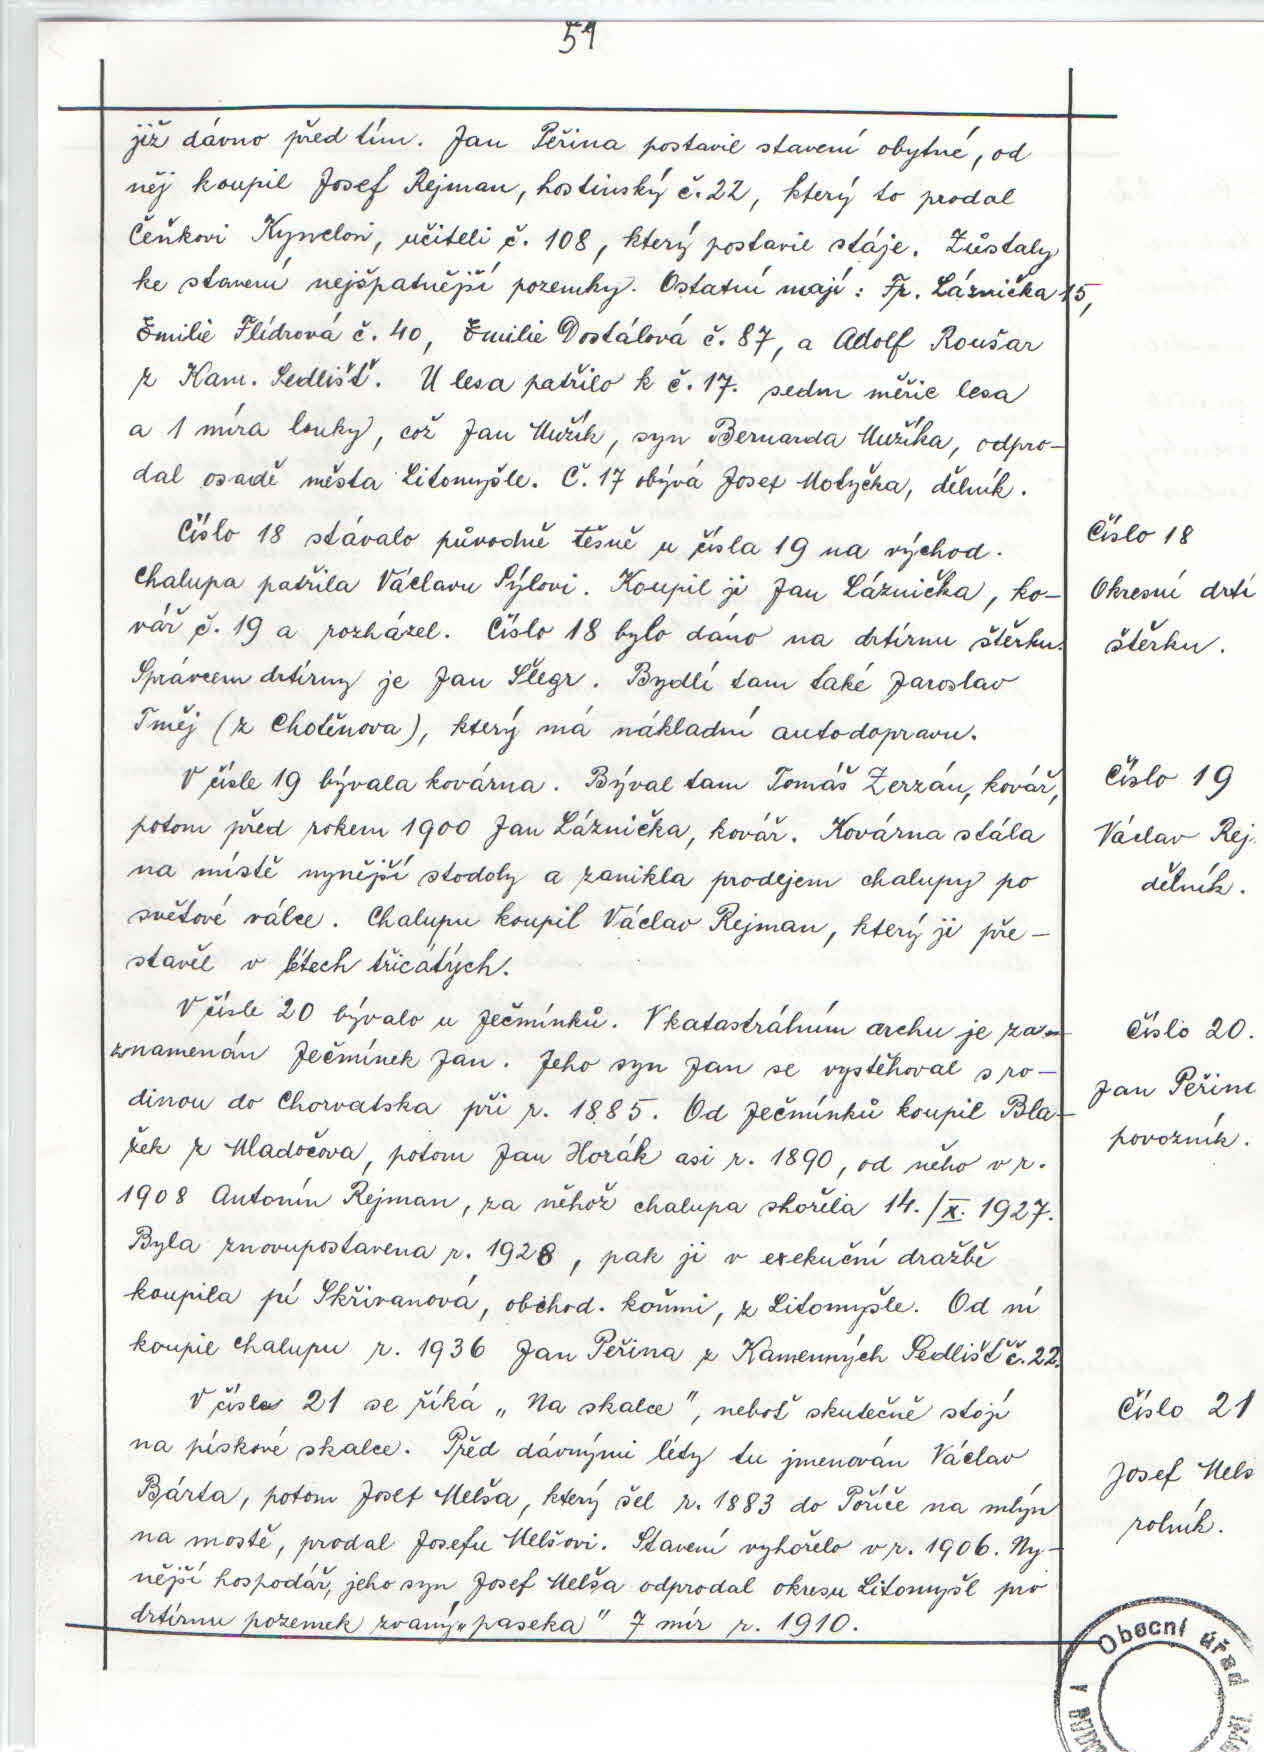 51
již dávno před tím. Jan Peřina postavil stavení obytné, od
něj koupil Josef Rejman, hostinský č. 22, který to prodal
Čeňkovi Kynclovi, učiteli č. 108, který postavil stáje. Zůstaly
ke stavení nejšpatnější pozemky. Ostatní mají: Fr. Láznička 15,
Emilie Flídrová č. 40, Emilie Dostálová č. 87, a Adolf Roušar
z Kam. Sedlišť. U lesa patřilo k č. 17. sedm měřic lesa
a 1 míra louky, což Jan Mužík, syn Bernarda Mužíka, odpro-
dal osadě města Litomyšle. Č. 17 obývá Josef Motyčka, dělník.
Číslo 18 stávalo původně těsně u čísla 19 na východ.
Chalupa patřila Václavu Sýlovi. Koupil ji Jan Láznička, ko-
vář č. 19 a rozházel. Číslo 18 bylo dáno na drtírnu štěrku.
Správcem drtírny je Jan Šlegr. Bydlí tam také Jaroslav
Tměj (z Chotěnova), který má nákladní autodopravu.
Číslo 18
Okresní drtí
štěrku.
V čísle 19 bývala kovárna. Býval tam Tomáš Zerzán, kovář,
potom před rokem 1900 Jan Láznička, kovář. Kovárna stála
na místě nynější stodoly a zanikla prodejem chalupy po
světové válce. Chalupu koupil Václav Rejman, který ji pře-
stavěl v létech třicátých.
Číslo 19
Václav Rej
dělník.
V čísle 20 bývalo u Ječmínků. V katastrálním archu je za-
znamenán Ječmínek Jan. Jeho syn Jan se vystěhoval s ro-
dinou do Chorvatska při r. 1885. Od Ječmínků koupil Bla-
žek z Mladočova, potom Jan Horák asi r. 1890, od něho v r.
1908 Antonín Rejman, za něhož chalupa shořela 14./X. 1927.
Byla znovupostavena r. 1928, pak ji v exekuční dražbě
koupila pí Skřivanová, obchod. koňmi, z Litomyšle. Od ní
koupil chalupu r. 1936 Jan Peřina z Kamenných Sedlišť č. 22.
Číslo 20.
Jan Peřina
povozník.
V čísle 21 se říká „Na skalce", neboť skutečně stojí
na pískové skalce. Před dávnými léty tu jmenován Václav
Bárta, potom Josef Melša, který šel r. 1883 do Poříče na mlýn
na mostě, prodal Josefu Melšovi. Stavení vyhořelo v r. 1906. Ny-
nější hospodář, jeho syn Josef Melša odprodal okresu Litomyšl pro
drtírnu pozemek zvaný „paseka" 7 mír r. 1910.
Číslo 21
Josef Mels
rolník.
Obecní úřad